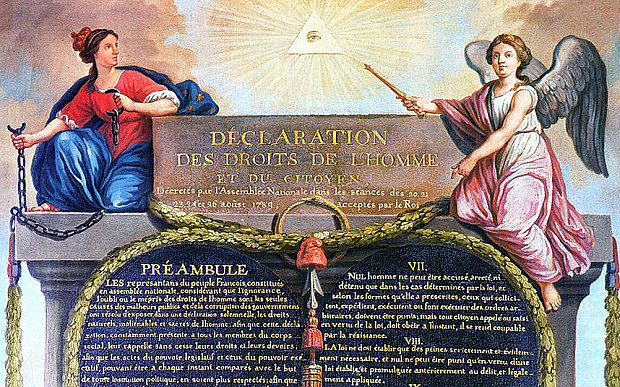 DÉCLARATION
DES DROITS DE L'HOMME
ET DU CITOYEN,
Décrétés par l'Assemblée Nationale dans les séances des 20, 21
23, 24 et 26 août 1789, acceptés par le Roi
PRÉAMBULE
LES représentans du peuple François, constitués
en assemblée nationale, considérant que l'ignorance,
l'oubli ou le mépris des droits de l'homme sont les seules
causes des malheurs publics et de la corruption des gouvernemens
ont résolu d'exposer, dans une déclaration solemnelle, les droits
naturels, inaliénables et sacrés de l'homme; afin que cette décla
ration, constamment présente à tous les membres du corps
social, leur rappelle sans cesse leurs droits et leurs devoirs;
afin que les actes du pouvoir législatif et ceux du pouvoir exé
cutif, pouvant être à chaque instant comparés avec le but
de toute institution politique, en soient plus respectés; afin que
VII.
NUL homme ne peut être accusé, arreté, ni
détenu que dans les cas déterminés par la loi, et
selon les formes qu'elle a prescrites, ceux qui sollici
tent, expédient, exécutent ou font exécuter des ordres ar
bitraires, doivent être punis; mais tout citoyen appelé ou saisi
en vertu de la loi, doit obéir à l'instant, il se rend coupable
par la résistance.
VIII.
LA loi ne doit établir que des peines strictement et évidem
ment nécessaire, et nul ne peut être puni qu'en vertu d'une
loi établie et promulguée antérieurement au délit, et légale
ment appliquée.